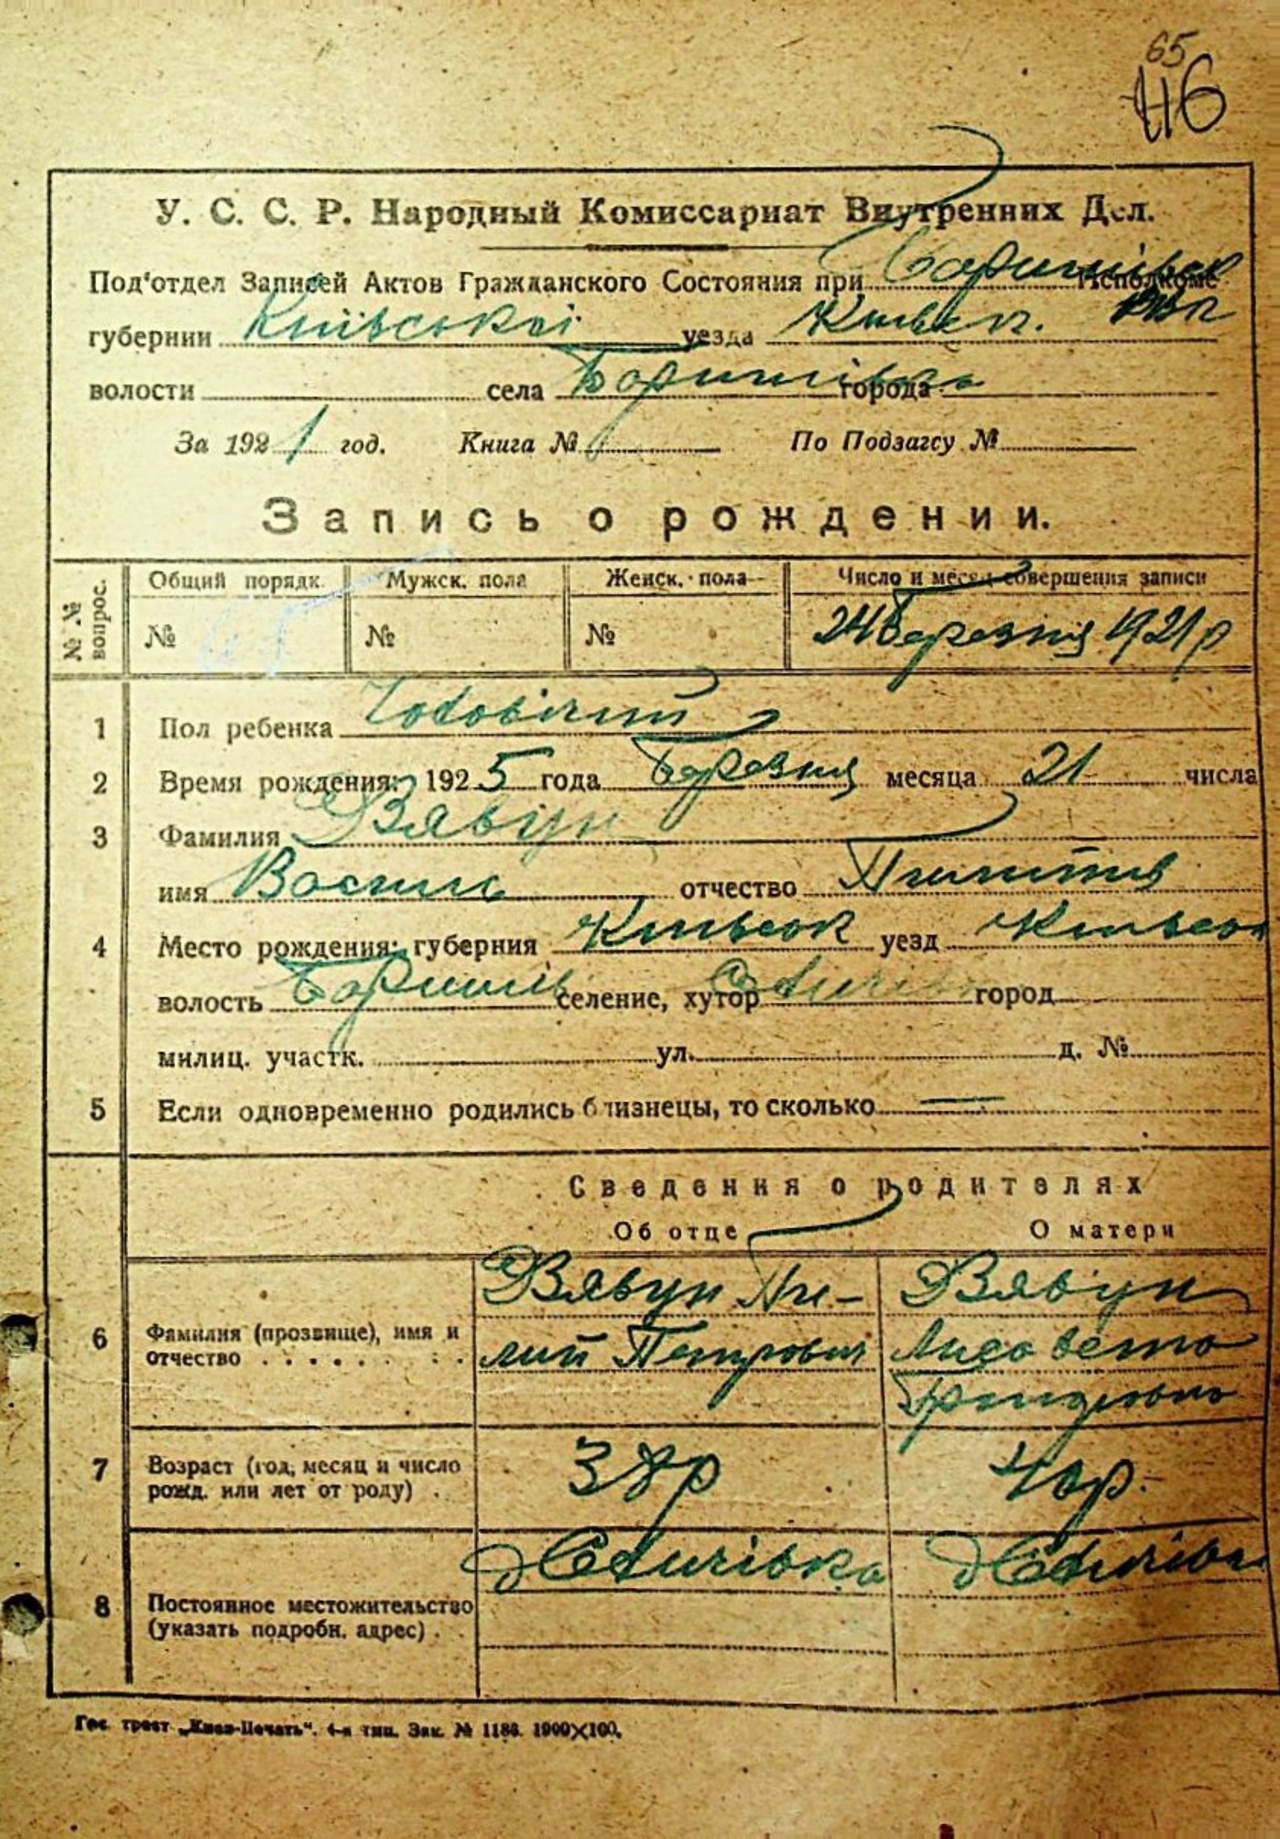 65
116
У. С. С. Р. Народный Комиссариат Внутренних Дел.
Под‘отдел Записей Актов Гражданского Состояния при Исполкоме
губернии Київської уезда Київськ.
волости села Баришівка города
За 1921 год. Книга № По Подзагсу №
Запись о рождении.
№ № вопрос. Общий порядк. Мужск. пола Женск. пола Число и месяц совершения записи
№ 65 № № 24 Березня 1921 р
1 Пол ребенка Чоловічий
2 Время рождения: 1925 года Березня месяца 21 числа
3 Фамилия Вявун
имя Василь отчество
4 Место рождения: губерния Київськ уезд Київськ
волость Баришів селение, хутор город
милиц. участк. ул. д. №
5 Если одновременно родились близнецы, то сколько —
Сведения о родителях
Об отце О матери
6 Фамилия (прозвище), имя и отчество Вявун Пи-
лип Петрович
Вявун
Лисавета
7 Возраст (год, месяц и число рожд. или лет от роду) 38р 40р.
8 Постоянное местожительство (указать подробн. адрес)
Гос. трест „Киев-Печать“. 4-я тип. Зак. № 1186. 1000×100.